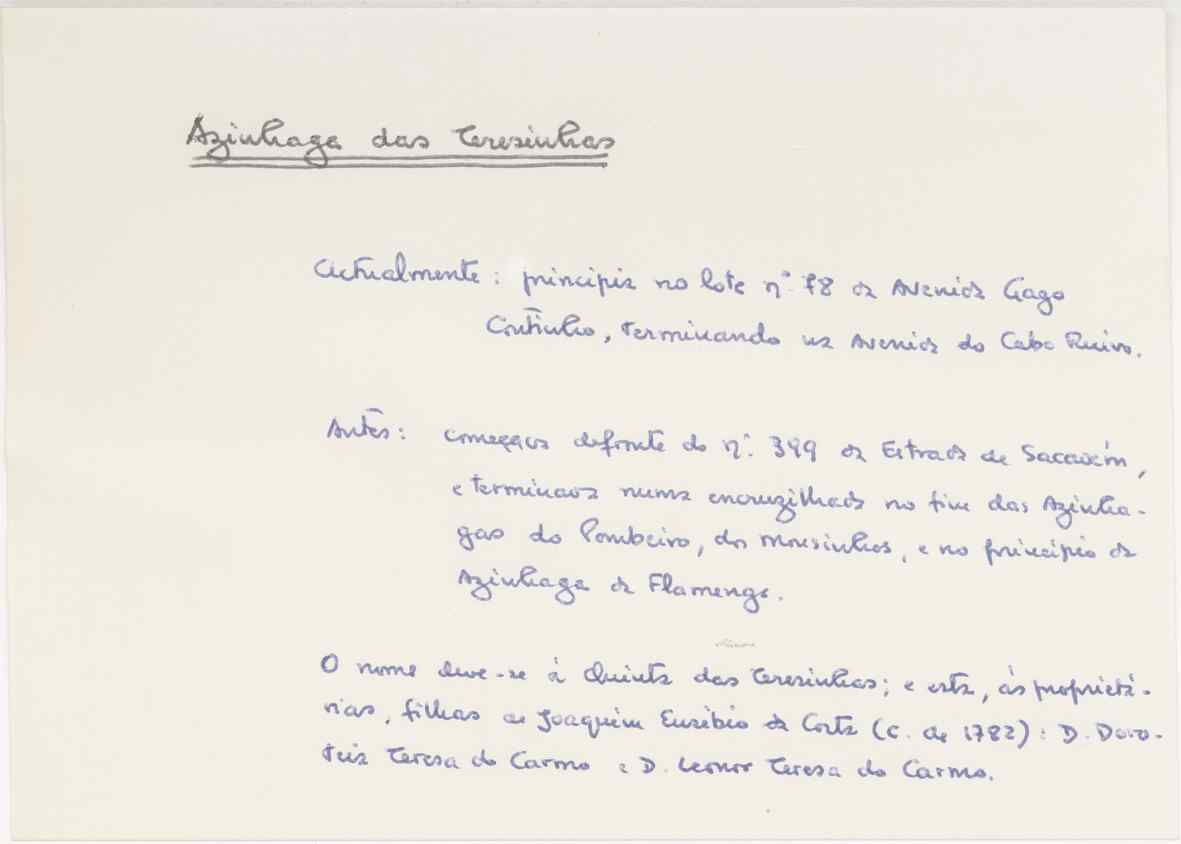 Azinhaga das Teresinhas
Actualmente: principia no lote nº. 78 da Avenida Gago
Coutinho, terminando na Avenida do Cabo Ruivo.
Antes: começava defronte do nº. 399 da Estrada de Sacavém,
e terminava numa encruzilhada no fim das Azinha-
gas do Pombeiro, dos Mousinhos, e no princípio da
Azinhaga da Flamenga.
O nome deve-se à Quinta das Teresinhas; e esta, às proprietá-
rias, filhas de Joaquim Eusébio da Costa (c. de 1782): D. Doro-
teia Teresa do Carmo e D. Leonor Teresa do Carmo.